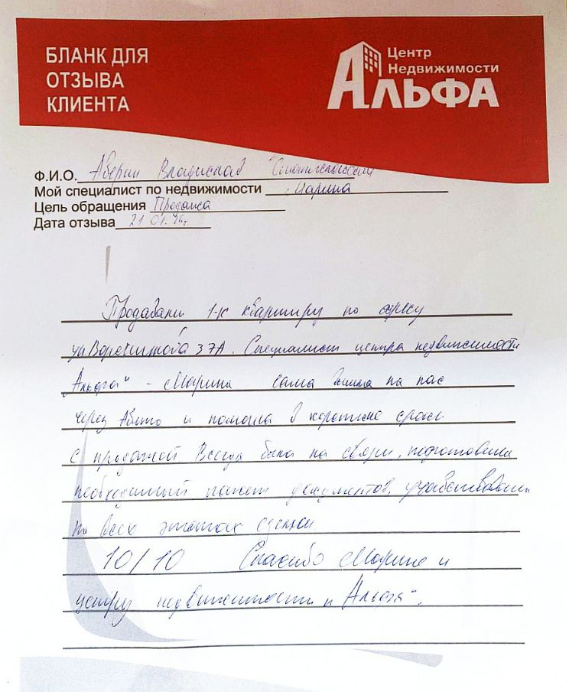 БЛАНК ДЛЯ
ОТЗЫВА
КЛИЕНТА
Центр
Недвижимости
АЛЬФА
Ф.И.О. Аверин Владислав
Мой специалист по недвижимости Марина
Цель обращения Продажа
Дата отзыва 21.01.
Продавали 1-к квартиру по адресу
ул Ворошилова 37А. Специалист центра недвижимости
"Альфа" - Марина сама вышла на нас
через Авито и помогла в короткие сроки
с продажей Всегда была на связи, подготовила
необходимый пакет документов, участвовала
на всех этапах сделки
10/10 Спасибо Марине и
центру недвижимости "Альфа".